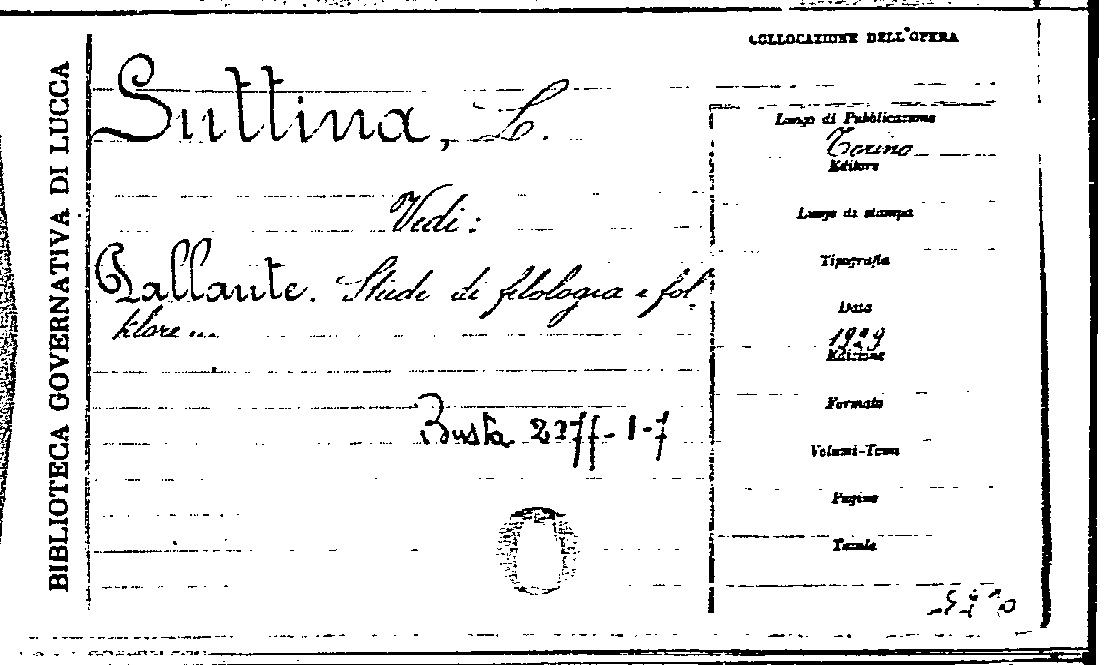 BIBLIOTECA GOVERNATIVA DI LUCCA
COLLOCAZIONE DELL'OPERA
Suttina, L.
Vedi:
Pallante. Studi di filologia e fol-
klore...
Busta
Luogo di Pubblicazione
Torino
Editore
Luogo di stampa
Tipografia
Data
1929
Edizione
Formato
Volumi-Tomi
Pagine
Tavole